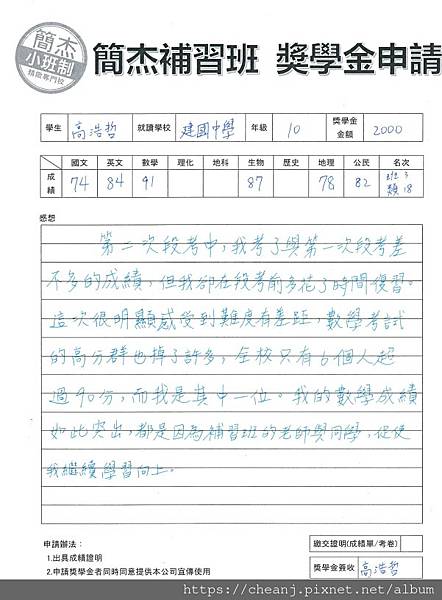 簡杰
小班制
精緻專門校
簡杰補習班 獎學金申請
學生 高浩哲 就讀學校 建國中學 年級 10 獎學金金額 2000
國文 英文 數學 理化 地科 生物 歷史 地理 公民 名次
成績 74 84 91 87 78 82 班3 類18
感想
第二次段考中,我考了與第一次段考差
不多的成績,但我卻在段考前多花了時間復習。
這次很明顯感受到難度有差距,數學考試
的高分群也掉了許多,全校只有6個人超
過90分,而我是其中一位。我的數學成績
如此突出,都是因為補習班的老師與同學,促使
我繼續學習向上。
申請辦法:
1.出具成績證明
2.申請獎學金者同時同意提供本公司宣傳使用
繳交證明(成績單/考卷)
獎學金簽收 高浩哲
https://cheanj.pixnet.net/album